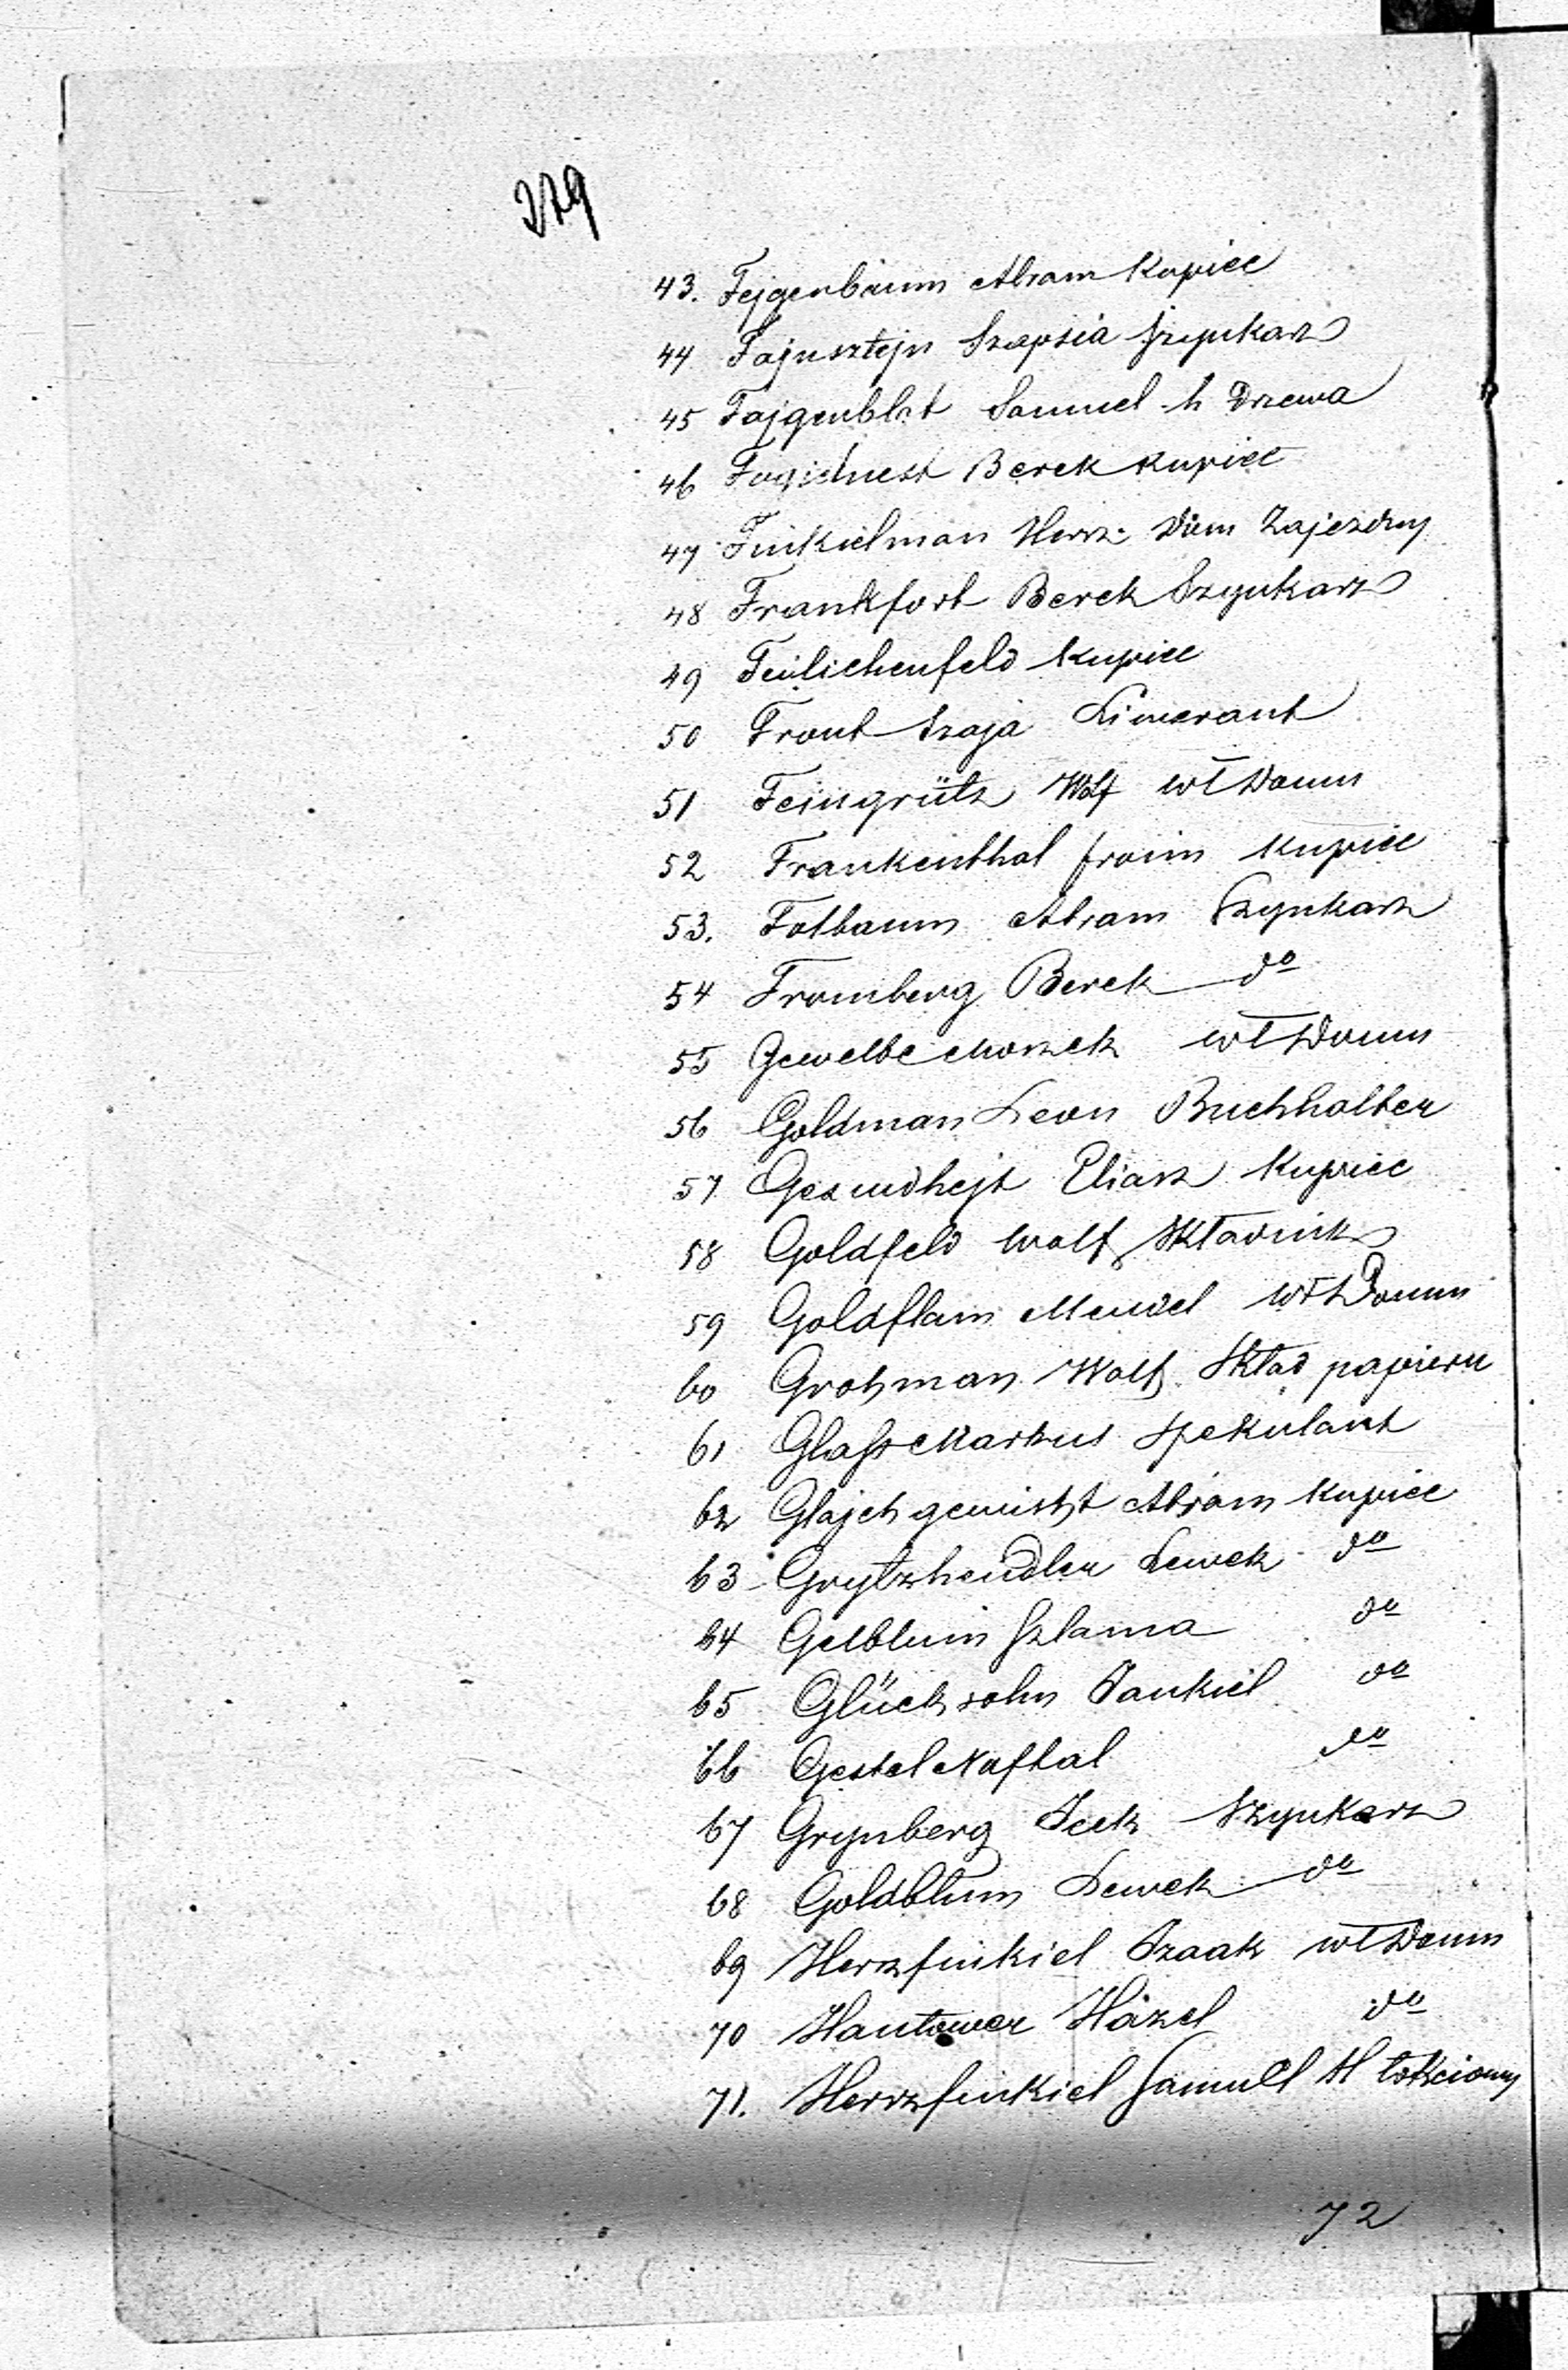 279
43. Fejgenbaum Abram Kupiec
44 Fajnsztejn Szepsia Szynkarz
45 Fajgenblat Samuel h Drzewa
46 Berek Kupiec
47 Finkielman Herz: Dom Zajezdny
48 Frankfort Berek Szynkarz
49 Feilichenfeld Kupiec
50 Front Szaja Liwerant
51 Feingrütz Wolf wł Domu
52 Frankenthal froim Kupiec
53. Fotbaum Abram Szynkarz
54 Fromberg Berek do
55 Gewelbe Moszek wł Domu
56 Goldman Leon Buchhalter
57 Gesundhejt Eliasz Kupiec
58 Goldfeld Wolf Składnik
59 Goldflam Mendel wł Domu
60 Grohman Wolf Skład papieru
61 Glass Markus Spekulant
62 Glajchgewicht Abram Kupiec
63 Grytzhendler Lewek do
64 Gelblum Szlama do
65 Glücksohn Jankiel do
66 Gestel Naftal do
67 Grynberg Icek Szynkarz
68 Goldblum Lewek do
69 Herzfinkiel Izaak wł Domu
70 Hantower do
71. Herszfinkiel Samuel H łokciowy
72